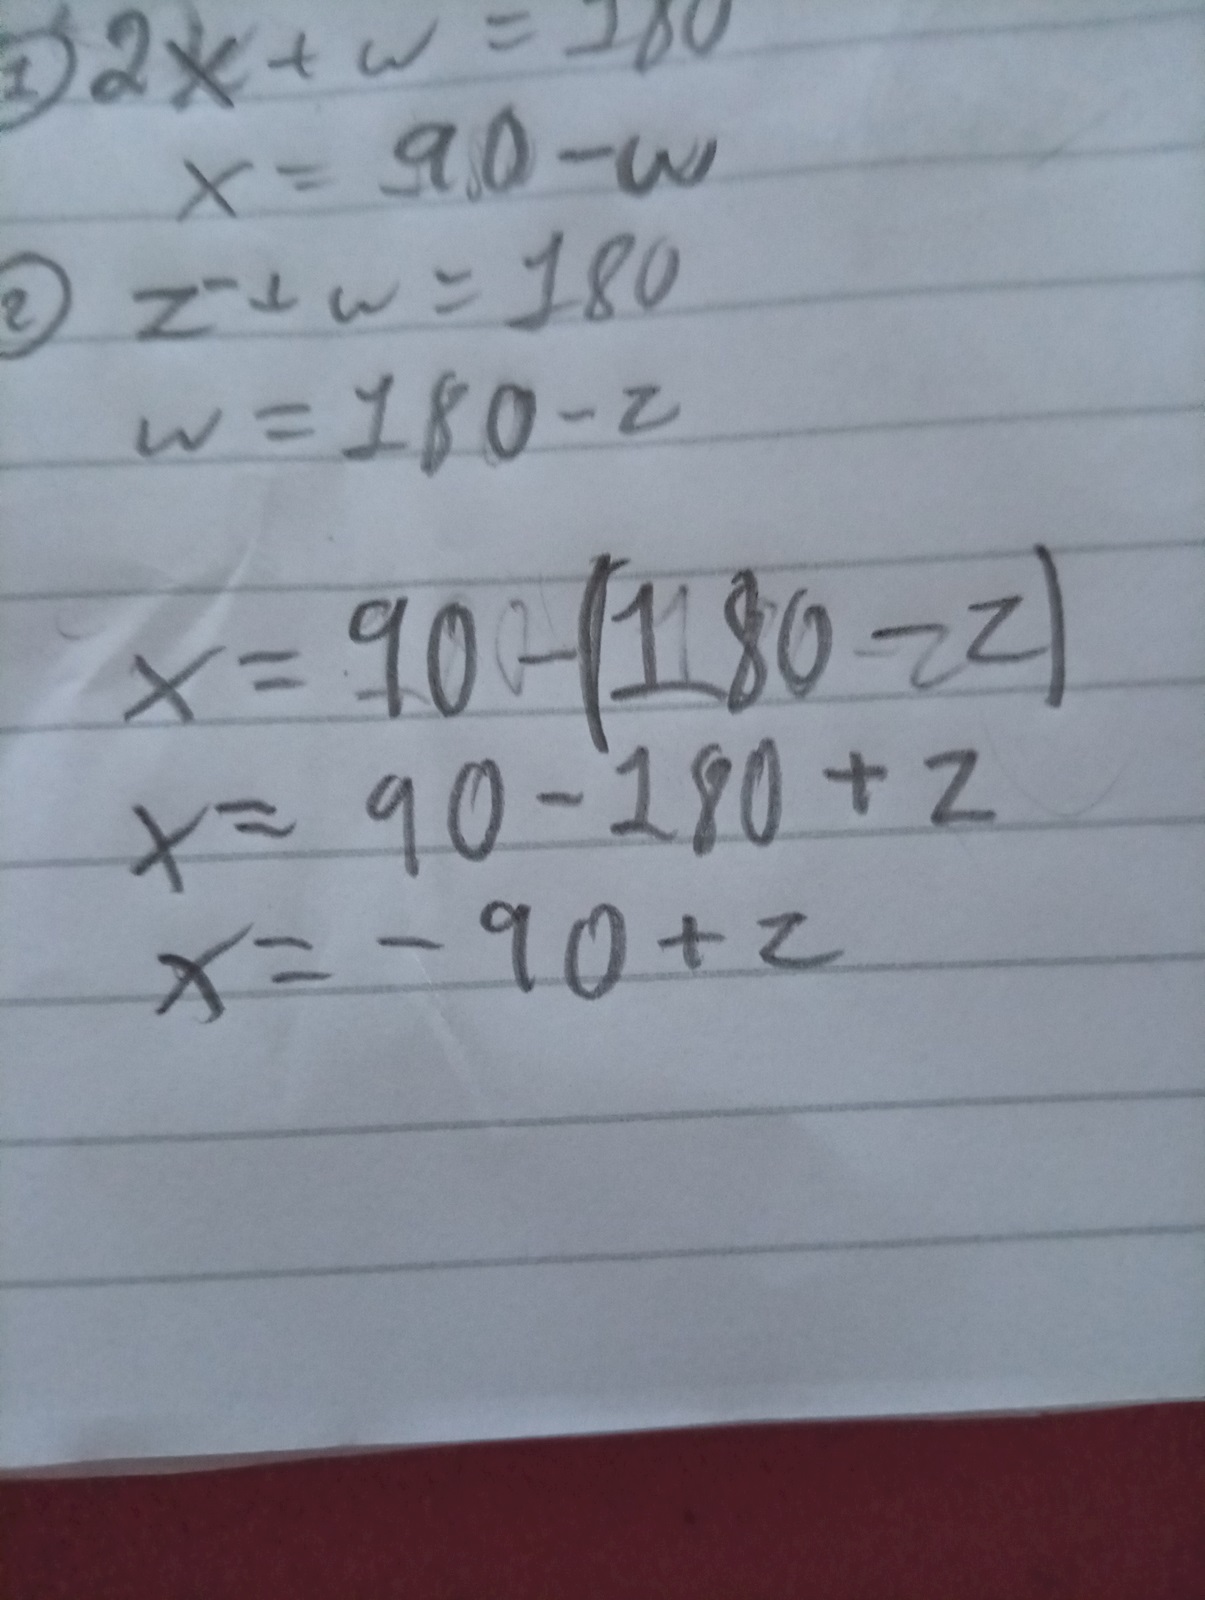 1) 2x + w = 180
x = 90 - w
2) z + w = 180
w = 180 - z
x = 90 - (180 - z)
x = 90 - 180 + z
x = - 90 + z